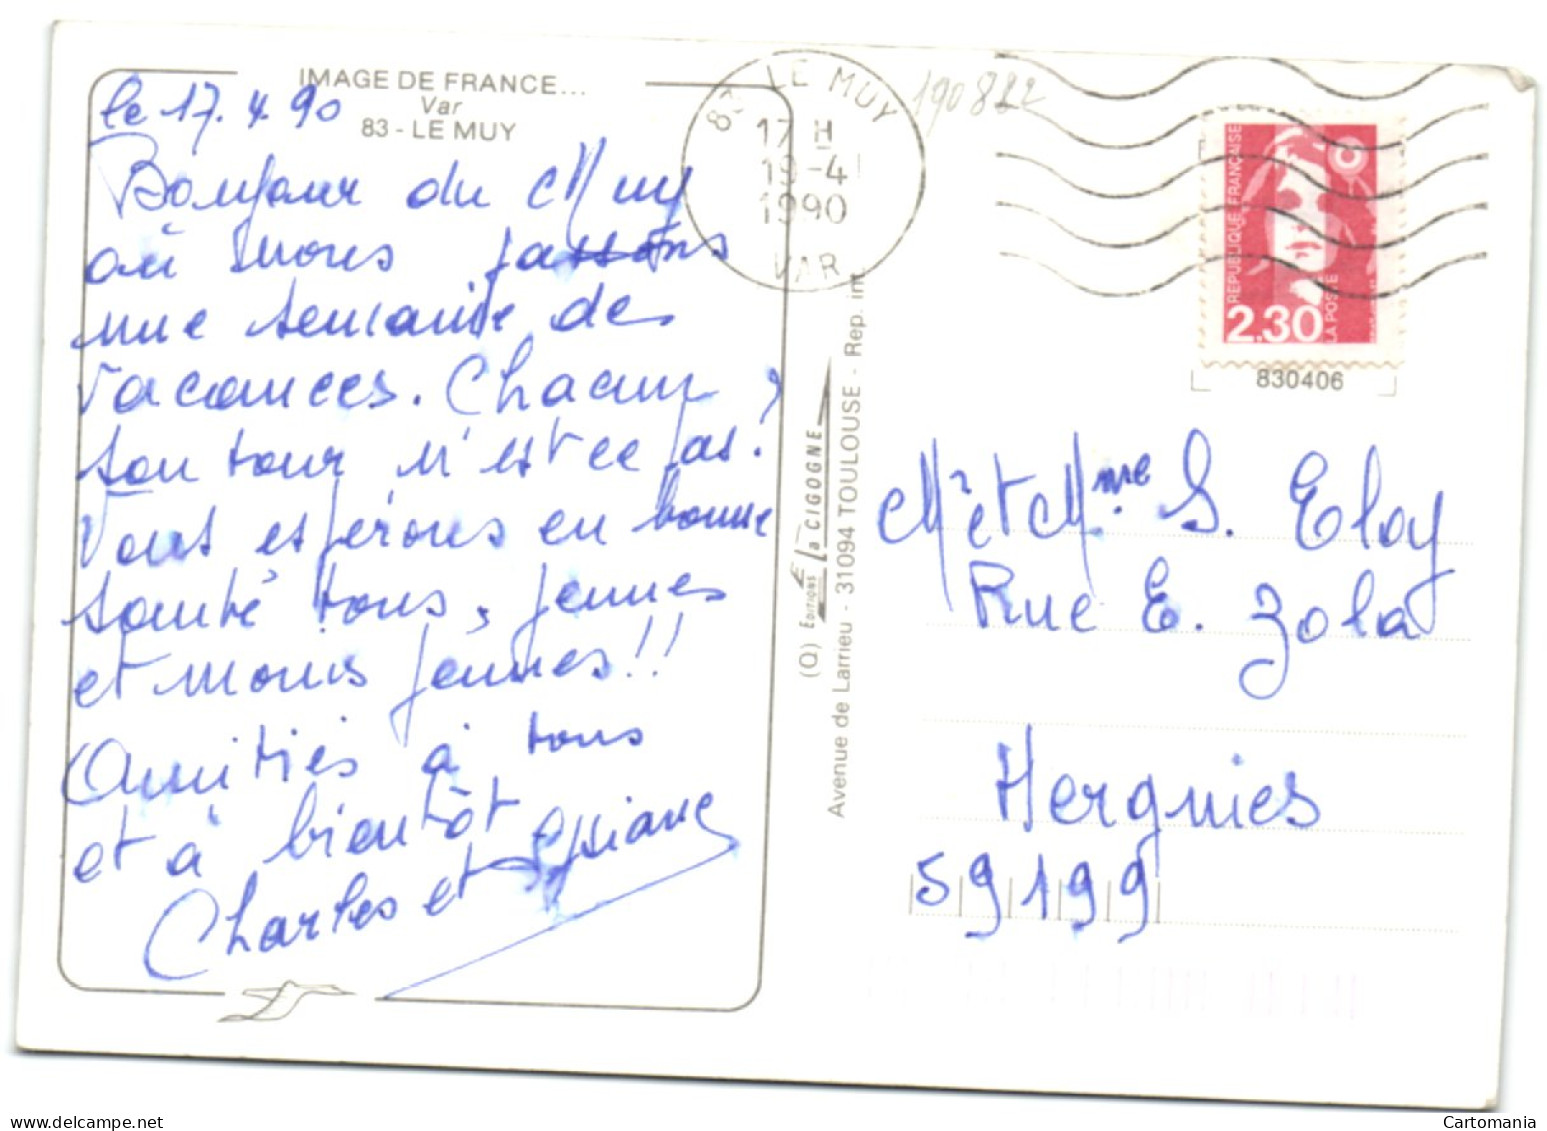 IMAGE DE FRANCE...
Var
83 - LE MUY
le 17.4.90
Bonjour du Muy
où nous passons
une semaine de
vacances. Chacun
son tour n'est ce pas?
Vous espérons en bonne
santé tous, jeunes
et moins jeunes!!
Amitiés à tous
et à bientôt
Charles et
(Q) EDITIONS La CIGOGNE
Avenue de Larrieu - 31094 TOULOUSE - Rep. int.
83 LE MUY
17 H
19-4
1990
VAR
190822
REPUBLIQUE FRANÇAISE
2.30
LA POSTE
830406
Mr et Mme S. Eloy
Rue E. Zola
Hergnies
59199
Cartomania
delcampe.net